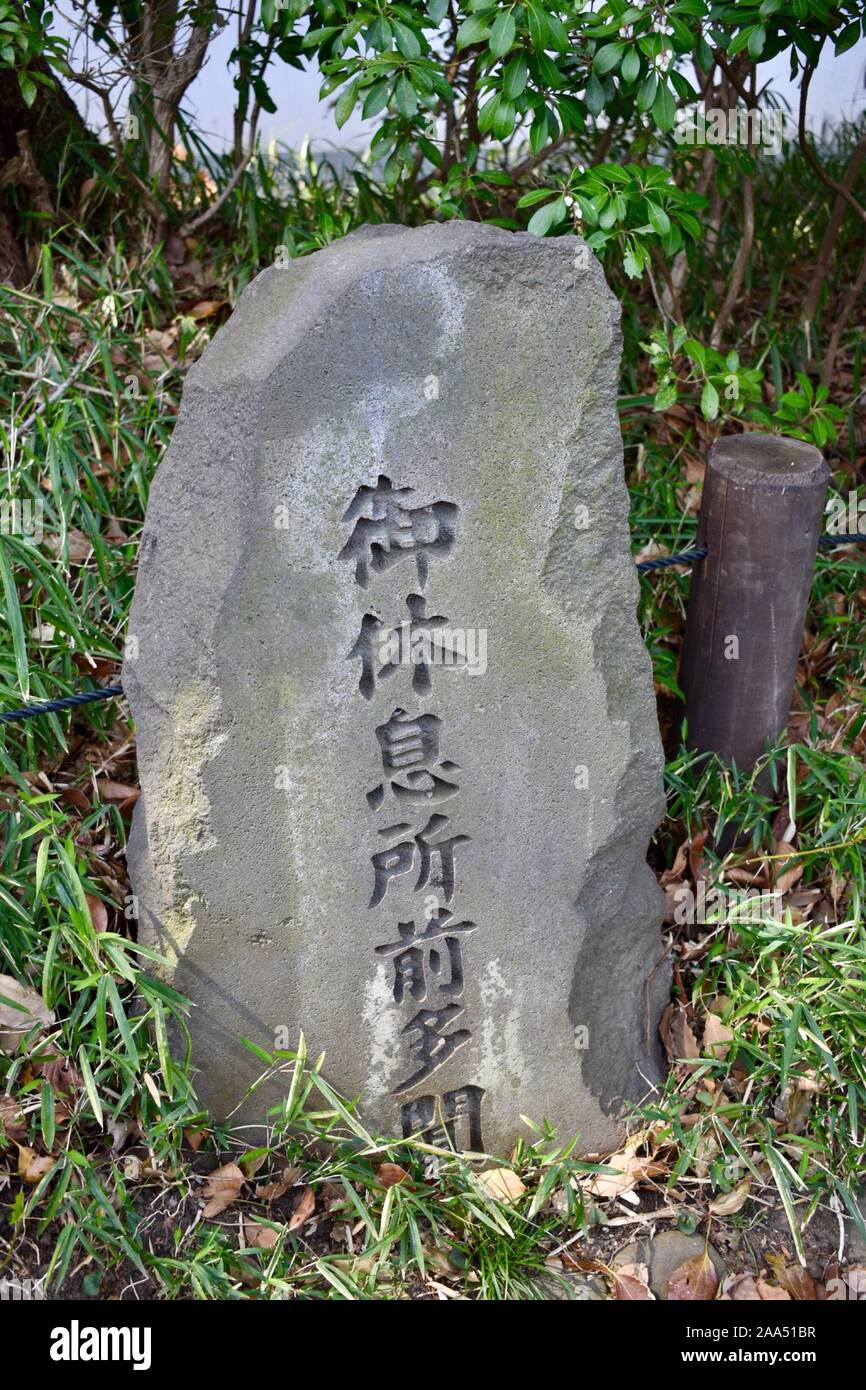 御休息所前多聞
alamy
Image ID: 2AA51BR
www.alamy.com